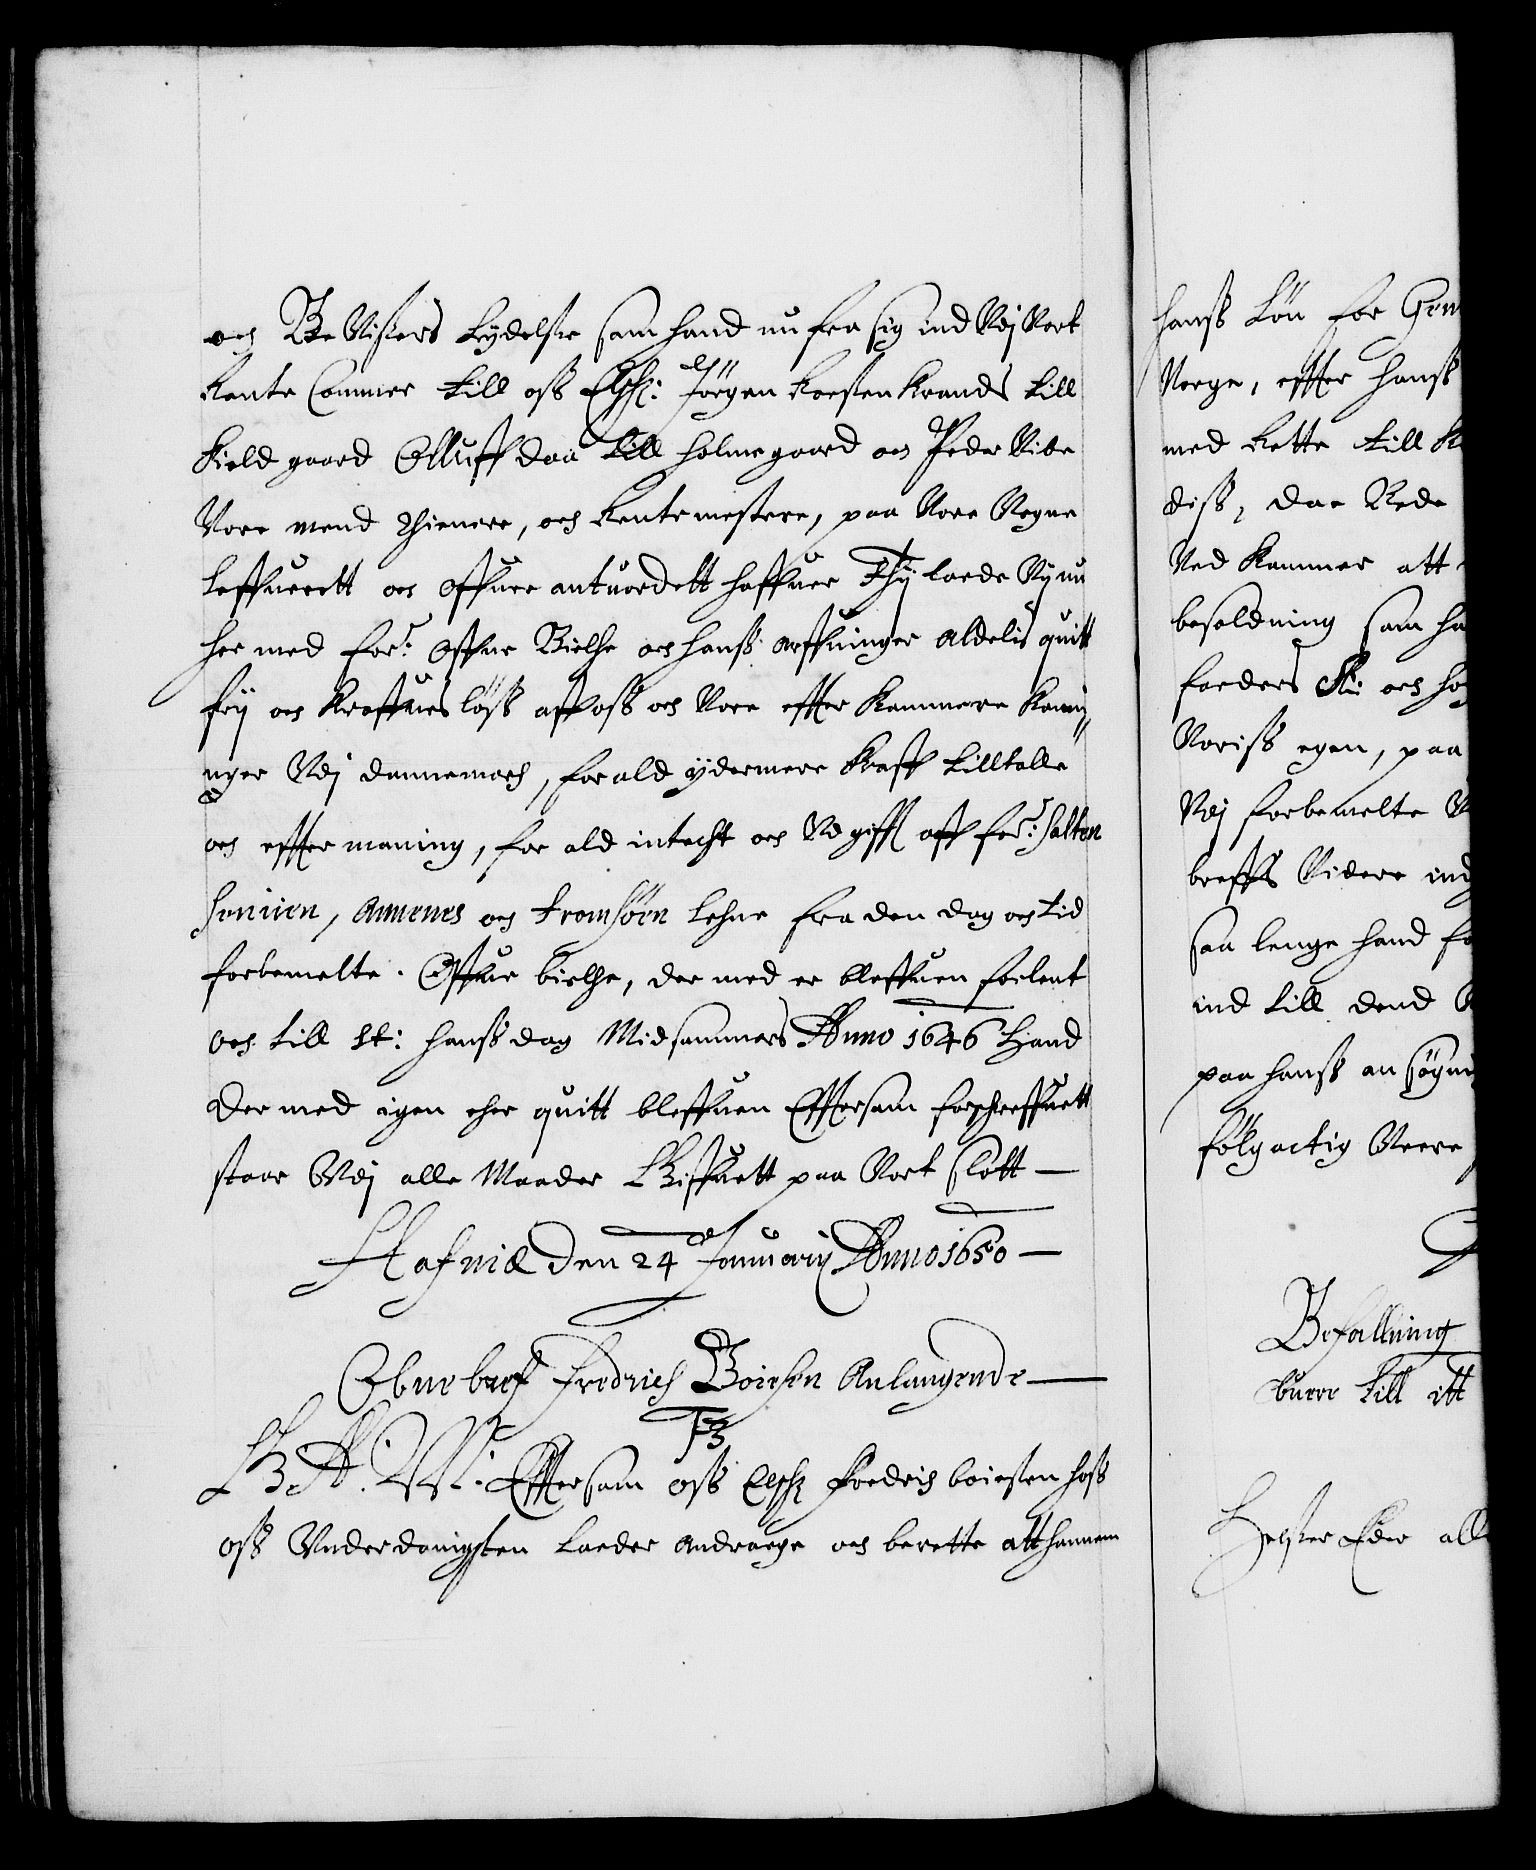 och Be Vißers Lydelße som hand nu fra sig ind Vdj Vort
Rente Cammer till oß Elsh: Jörgen Roesten Krands till
Kield gaard Olluff daa till holmegaard oc Peder Vibe
Vore mend thienere, och Rentemestere, paa Vore Vegne
Leffueritt oc offuer antuordett haffuer Thÿ lade Vÿ nu
her med for: Offue Bielke och hanß arffuinger aldelis quitt
frÿ och Kraffuesløß aff oß och Vore effter Kommere Konni
nger Vdj dannemarch, for ald ÿdermere Kraff tilltalle
oc effter maning, for ald intecht och Vdgifft aff for: Salten
Sennien, Annenes oc Tromsöen Lehne fra den dag och tid
forbemelte. Offue bielke, der med er bleffuen forlent
och till St: hanß dag Midsommers Anno 1646 Hand
der med igen ehr quitt bleffuen Effterson forschreffuett
staar Vdj alle Maader Giffuett paa Vort slott
Hafniæ Den 24 Januarij Anno 1650
Obne breff Fredrich Boiesen Anlangende
F3
G. A. V. Eftersom oß Elsk Fredrich boiesten hoß
oß Vnderdanigsten Lader andrage och berette att hannem
hanß Løn for
Norge, effter hanß
med Rette till
diß, dae Rede
Ved Kammer att
besoldning som ha
faeders St: och ho
Voriß egen, paa
Vdj forbemelte
breffs Videre ind
saa lenge hand fo
ind till dend
paa hanß an søgni
følg actig Veere
Befallning
buerr till itt
Helßer Eder alle